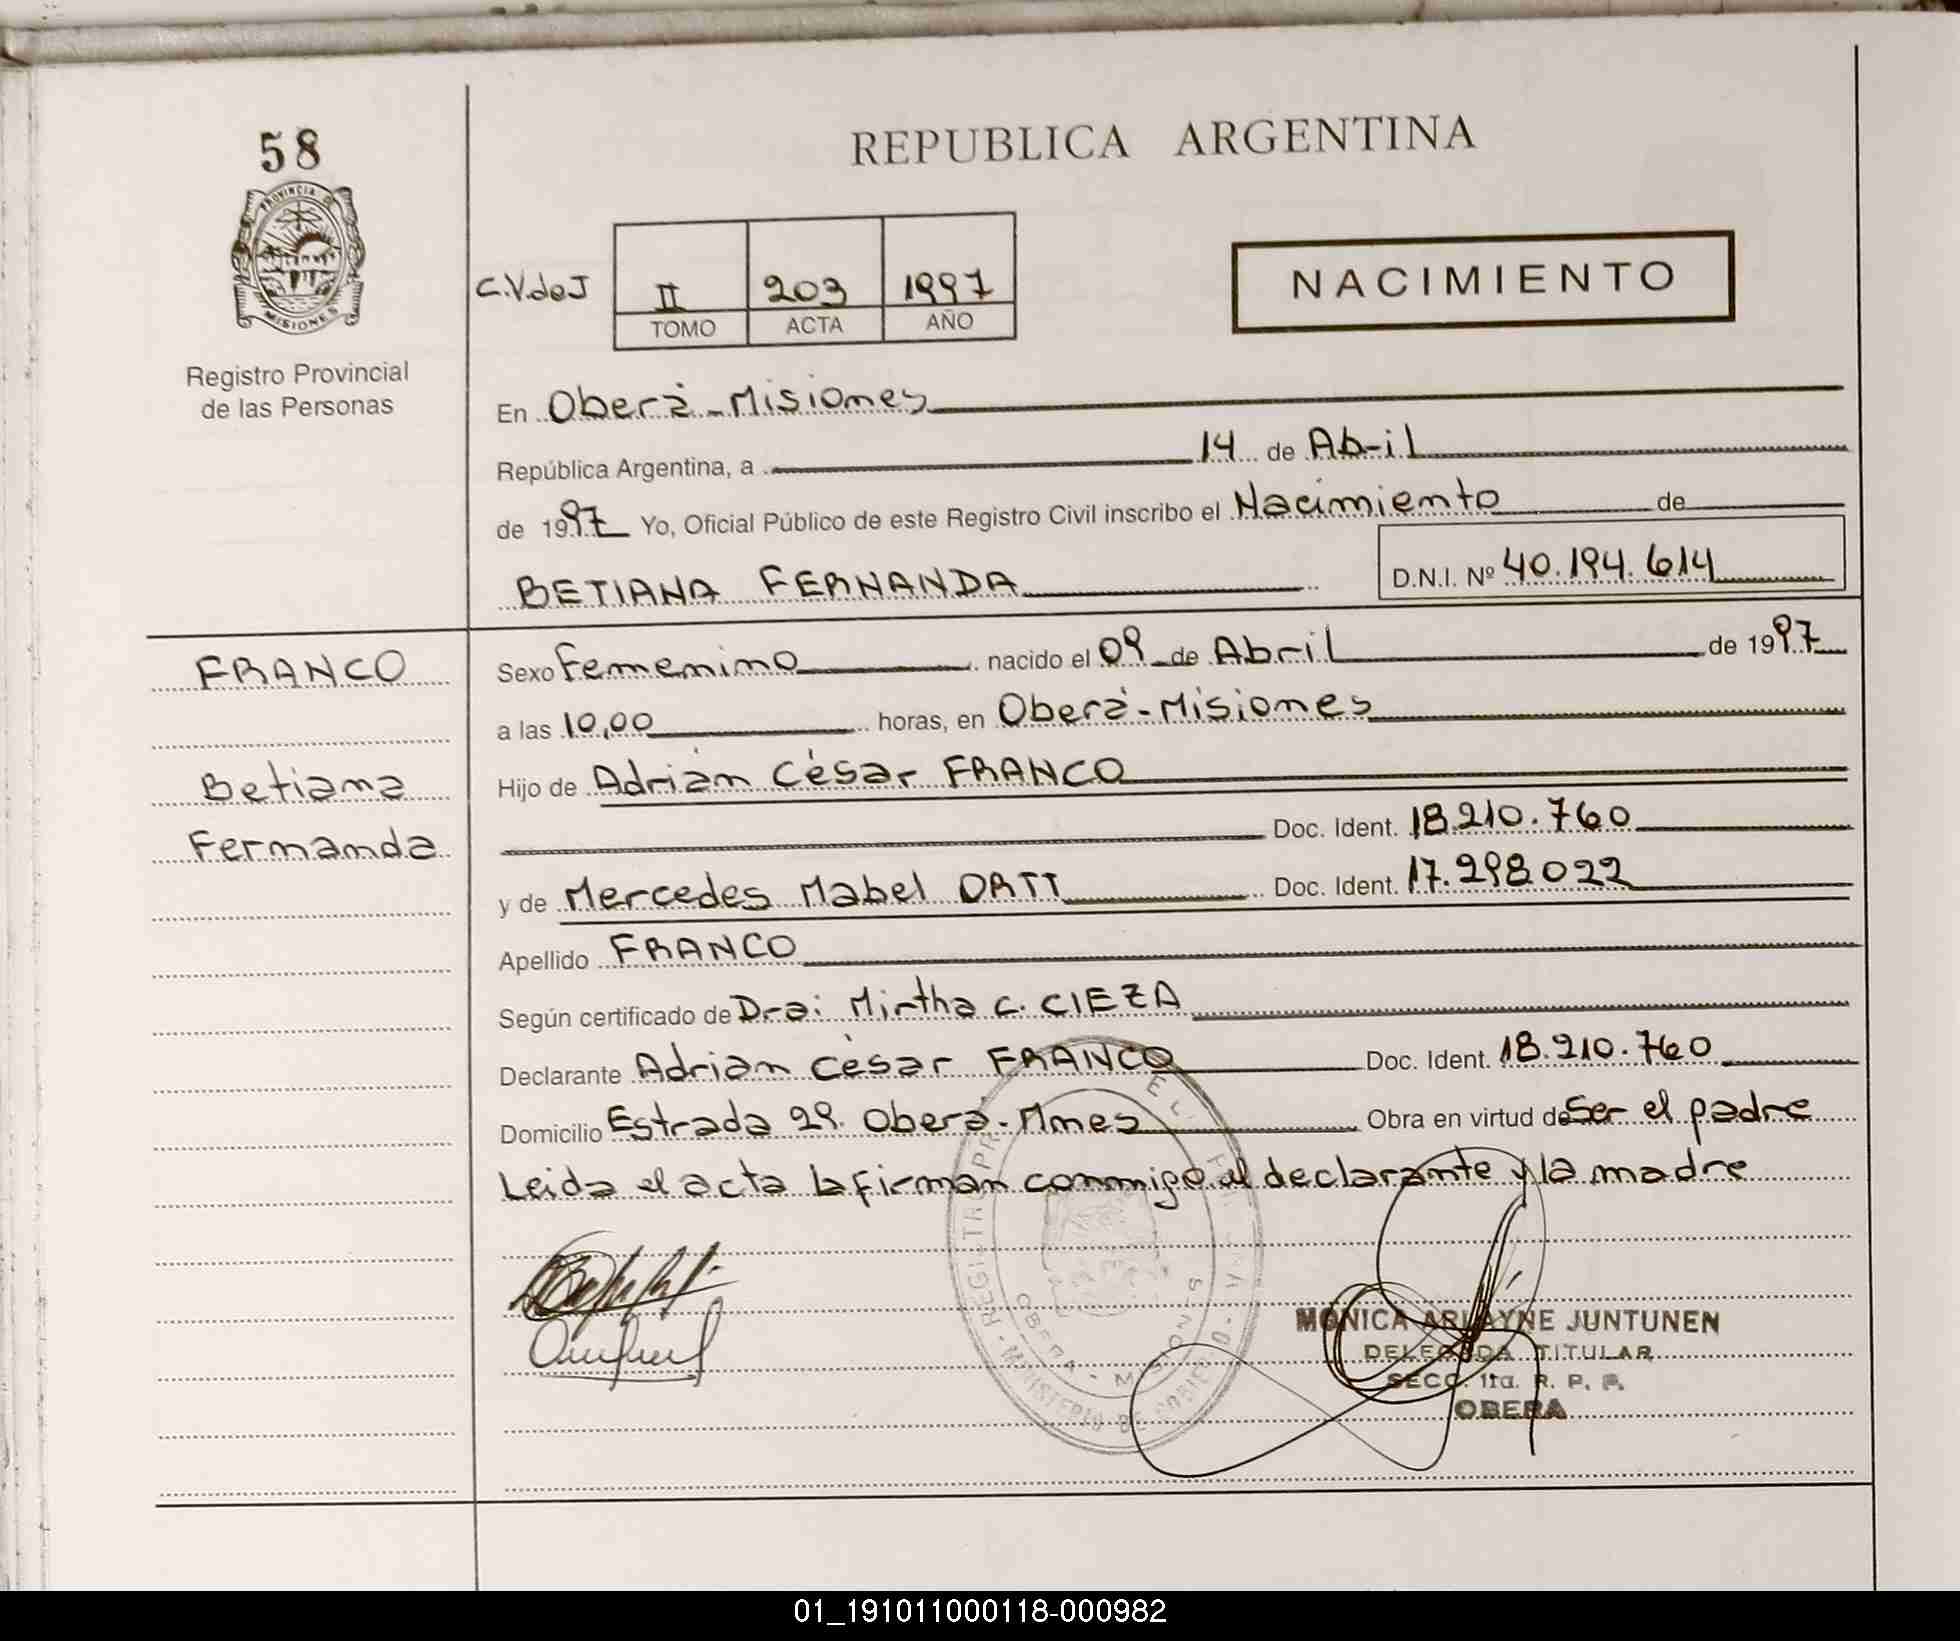 58
PROVINCIA D
MISIONES
Registro Provincial
de las Personas
REPUBLICA ARGENTINA
C.V.deJ II 203 1997
TOMO ACTA AÑO
NACIMIENTO
En Oberá-Misiones
República Argentina, a 14 de Abril
de 1997 Yo, Oficial Público de este Registro Civil inscribo el Nacimiento de
BETIANA FERNANDA D.N.I. Nº 40.194.614
FRANCO
Betiana
Fernanda
Sexo Femenino nacido el 09 de Abril de 1997
a las 10,00 horas, en Oberá-Misiones
Hijo de Adrián César FRANCO
Doc. Ident. 18.210.760
y de Mercedes Mabel DATT Doc. Ident. 17.298.022
Apellido FRANCO
Según certificado de Dra: Mirtha C. CIEZA
Declarante Adrian César FRANCO Doc. Ident. 18.210.760
Domicilio Estrada 29. Oberá-Mnes Obra en virtud de Ser el padre
Leida el acta la firman conmigo el declarante y la madre
OBERA - MISIONES
MONICA ARLAYNE JUNTUNEN
DELEGADA TITULAR
SECC. 1ra. R. P. P.
OBERA
01_191011000118-000982